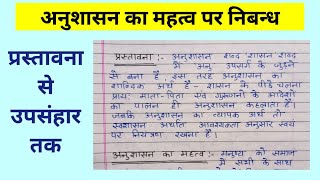 अनुशासन का महत्व पर निबन्ध
प्रस्तावना
से
उपसंहार
तक
प्रस्तावना :- अनुशासन शब्द शासन शब्द
में अनु उपसर्ग के जुड़ने
से बना है। इस तरह अनुशासन का
शाब्दिक अर्थ है - शासन के पीछे चलना
प्रायः माता-पिता एवं गुरुजनों के आदेशों
का पालन ही अनुशासन कहलाता है।
जबकि अनुशासन का व्यापक अर्थ तो
स्वशासन अर्थात आवश्यकता अनुसार स्वयं
पर नियंत्रण रखना है।
अनुशासन का महत्व :- मनुष्य को समाज
में सभी के साथ